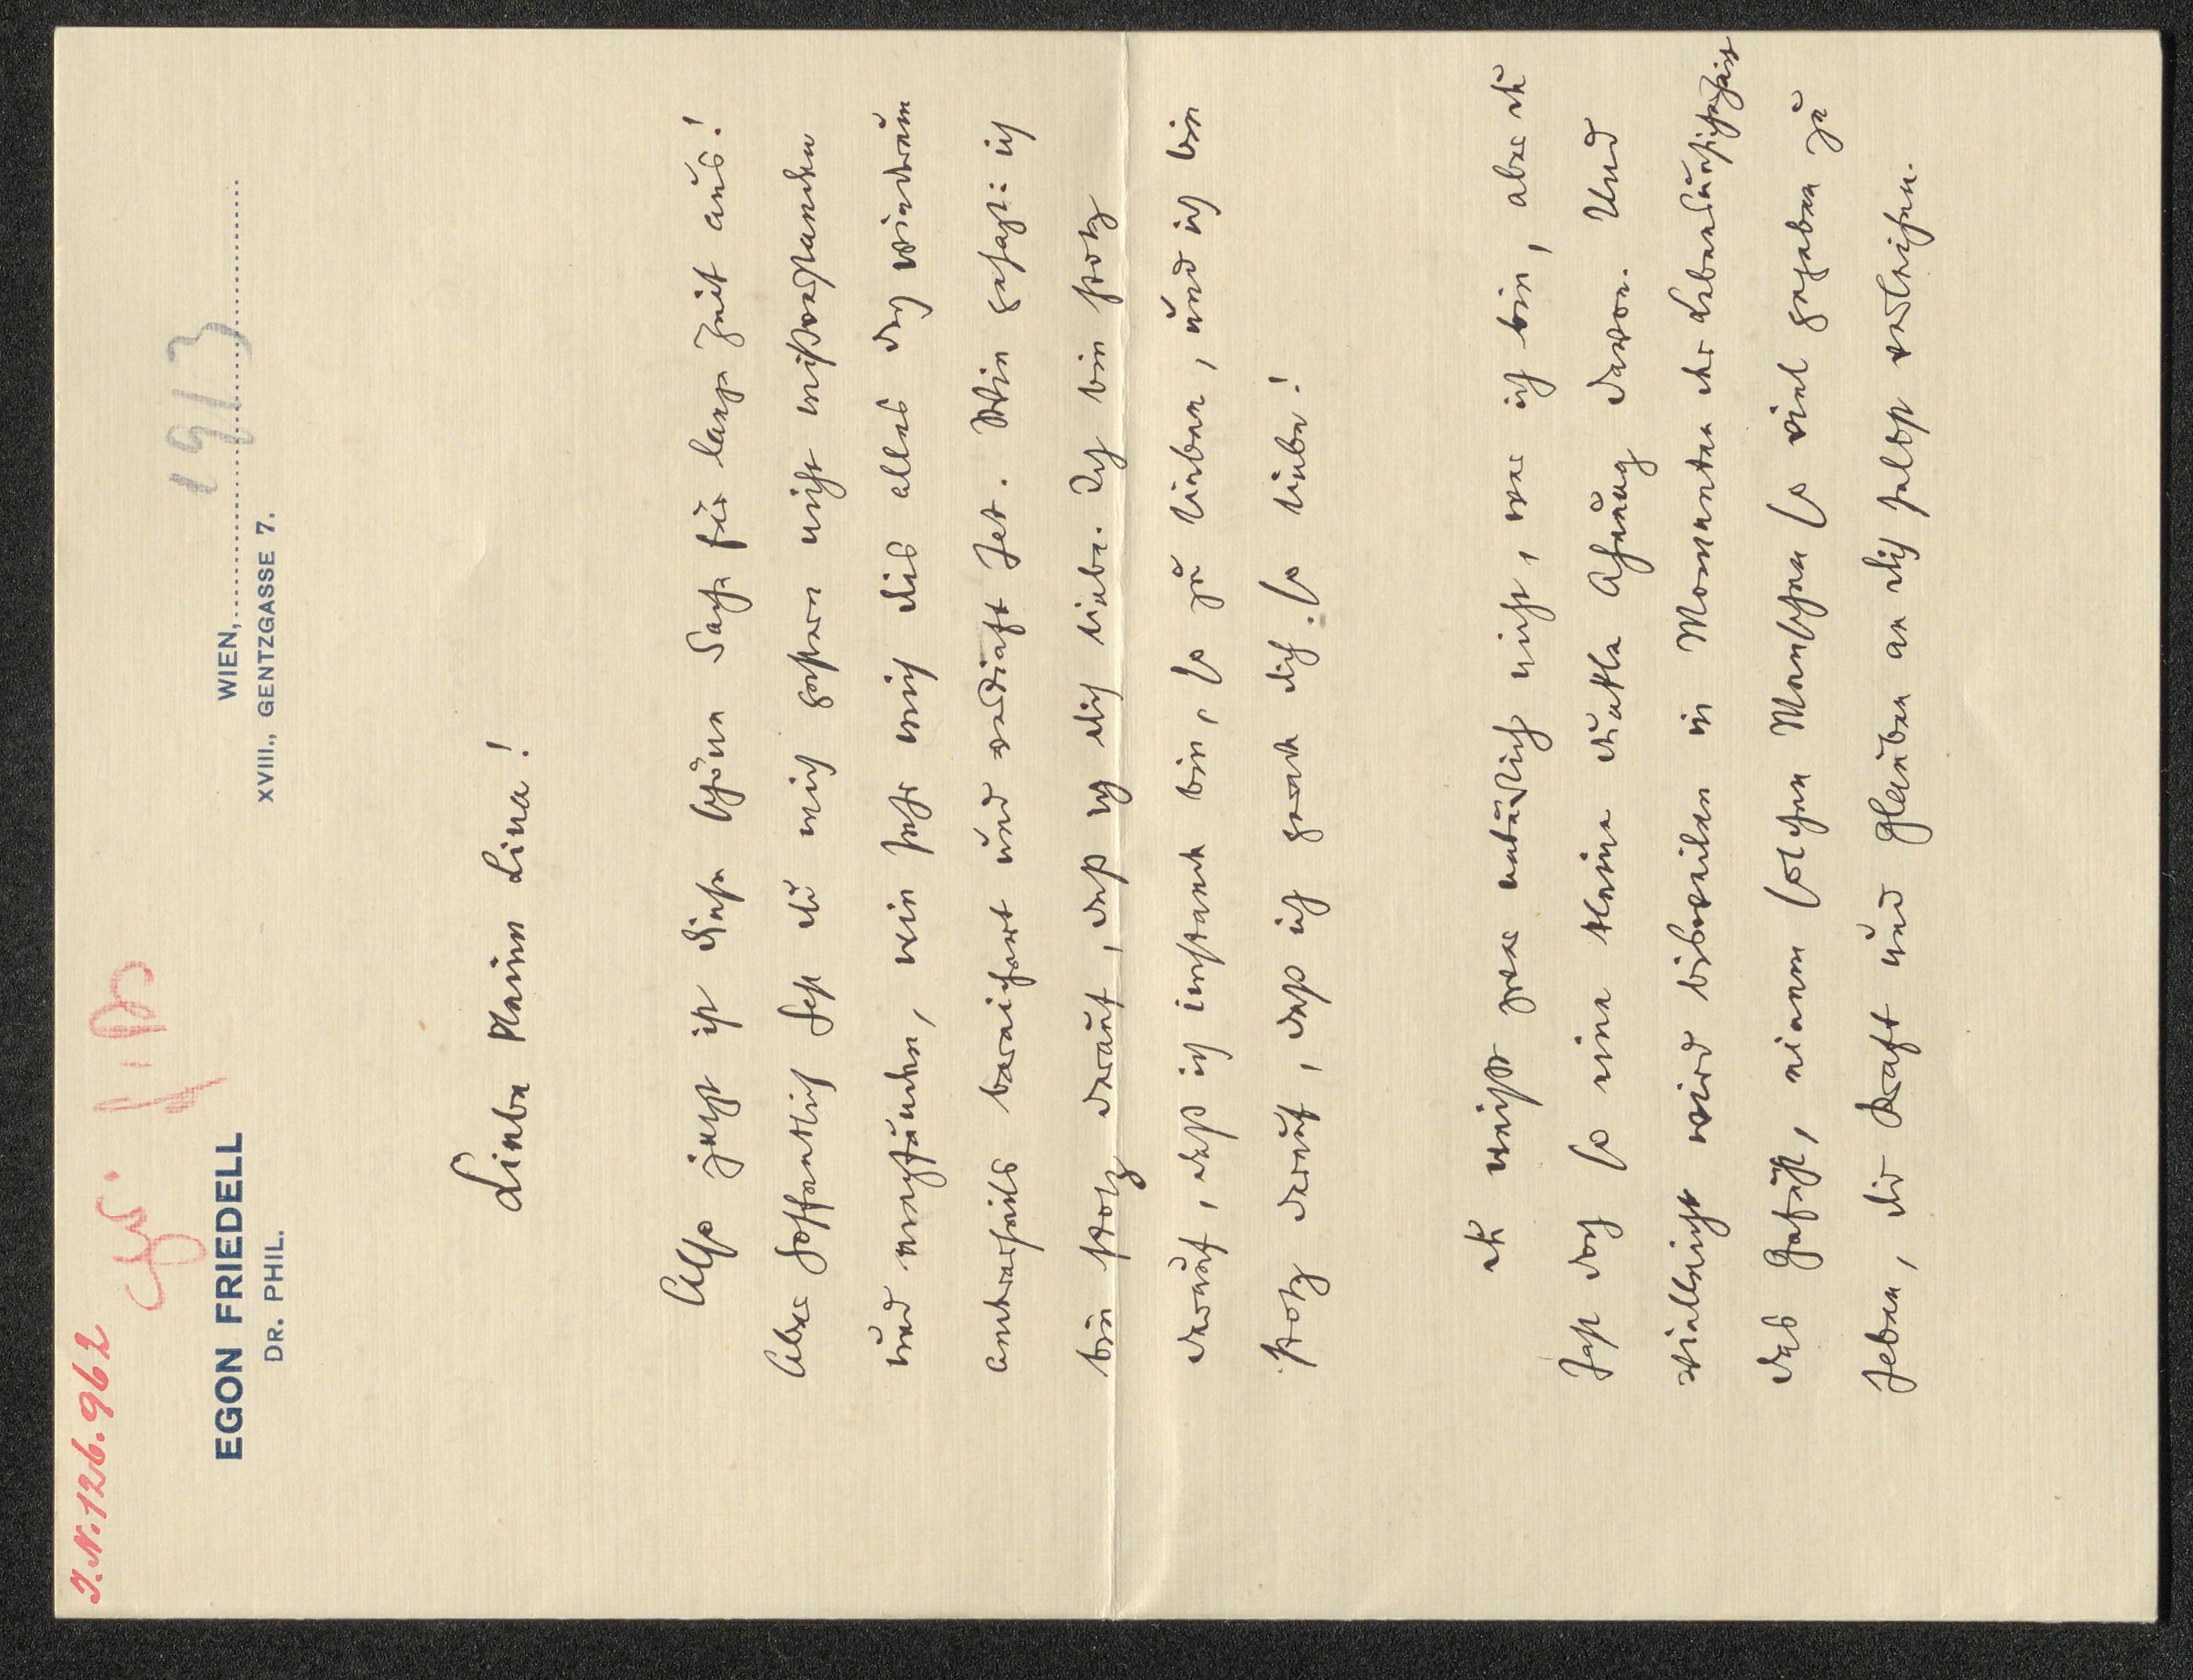 J.N. 126.962
EGON FRIEDELL
DR. PHIL.
WIEN, 1913
XVIII., GENTZGASSE 7.
Liebe kleine Lina!
Also jetzt ist diese schöne Sache für lange Zeit aus!
Aber hoffentlich hast du mich gestern nicht mißverstanden
und empfunden, wie sehr mich dies alles doch wiederum
andererseits bereichert und vertieft hat. Wie gesagt: ich
bin stolz darauf, dass ich dich liebe. Ich bin stolz
darauf, dass ich imstande bin, so zu lieben, und ich bin
stolz darauf, dass ich gerade dich so liebe!
Du weisst zwar natürlich nicht, wer ich bin, aber du
hast doch so eine kleine dunkle Ahnung davon. Und
vielleicht wird bisweilen in Momenten der Lebensunsicherheit
das Gefühl, einem solchen Menschen so viel gegeben zu
haben, dir Kraft und Glauben an dich selbst verleihen.